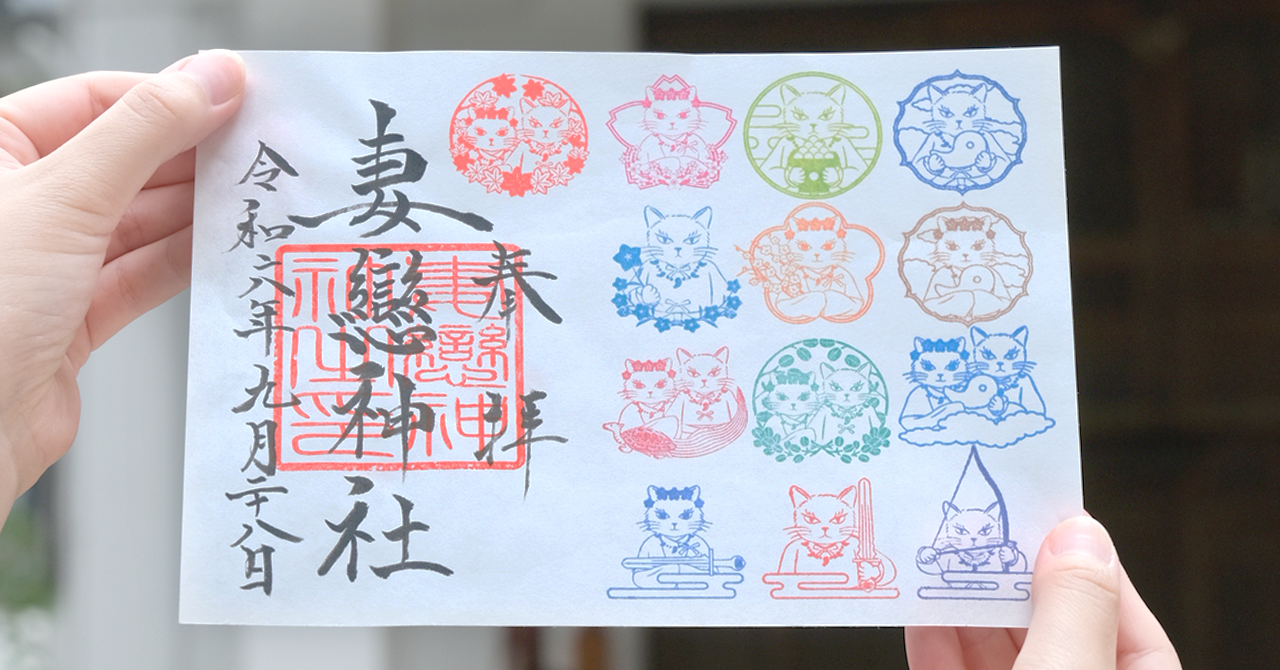 奉拝
妻戀神社
妻戀神社印
令和六年九月二十八日